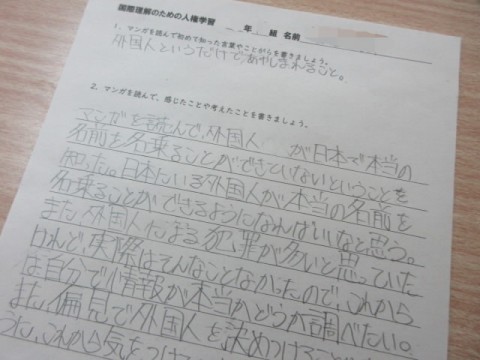 国際理解のための人権学習 年 組 名前
1、マンガを読んで初めて知った言葉やことがらを書きましょう。
外国人というだけであやしまれること。
2、マンガを読んで、感じたことや考えたことを書きましょう。
マンガを読んで、外国人 が日本で本当の
名前を名乗ることができていないということを
知った。日本にいる外国人が本当の名前を
名乗ることができるようになればいいなと思う。
また、外国人による犯罪が多いと思っていた
けれど、実際はそんなことなかったので、これから
は自分で情報が本当かどうか調べたい。
また、偏見で外国人を決めつけること
うに、これから気をつけ